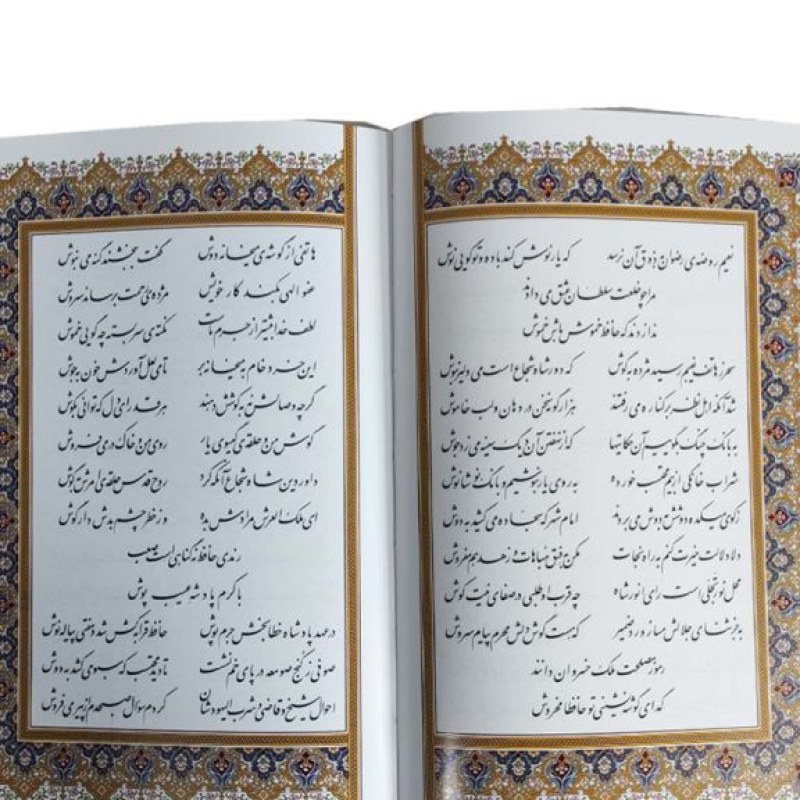 نعیم روضه‌ی رضوان بذوق آن نرسد که یار نوش کند باده و تو گویی نوش
مرا چو خلعت سلطان عشق می دادند
ندا زدند که حافظ خموش باش خموش
سحر ز هاتف غیبم رسید مژده به گوش که دور شاه شجاع است می دلیر بنوش
شد آنکه اهل نظر بر کناره می رفتند هزار گونه سخن در دهان و لب خاموش
به بانگ چنگ بگوییم آن حکایتها که از نهفتن آن دیگ سینه می زد جوش
شراب خانگی از بیم محتسب خورده به روی یار بنوشیم و بانگ نوشانوش
ز کوی میکده دوشش به دوش می بردند امام شهر که سجاده می کشید به دوش
دلا دلالت خیرت کنم به راه نجات مکن به فسق مباهات و زهد هم مفروش
محل نور تجلی است رای انور شاه چو قرب او طلبی در صفای نیت کوش
به جز ثنای جلالش مساز ورد ضمیر که هست گوش دلش محرم پیام سروش
رموز مصلحت ملک خسروان دانند
گدای گوشه نشینی تو حافظا مخروش
هاتفی از گوشه‌ی میخانه دوش گفت ببخشند گنه می بنوش
عفو الهی بکند کار خویش مژده‌ی رحمت برساند سروش
لطف خدا بیشتر از جرم ماست نکته‌ی سربسته چه گویی خموش
این خرد خام به میخانه بر تا می لعل آوردش خون به جوش
گرچه وصالش نه به کوشش دهند هر قدر ای دل که توانی بکوش
گوش من و حلقه‌ی گیسوی یار روی من و خاک در می فروش
داور دین شاه شجاع آنکه کرد روح قدس حلقه‌ی امرش به گوش
ای ملک العرش مرادش بده وز خطر چشم بدش دار گوش
رندی حافظ نه گناهی است صعب
با کرم پادشه عیب پوش
در عهد پادشاه خطابخش جرم پوش حافظ قرابه کش شد و مفتی پیاله نوش
صوفی ز کنج صومعه در پای خم نشست تا دید محتسب که سبو می کشد به دوش
احوال شیخ و قاضی و شرب الیهودشان کردم سؤال صبحدم از پیر می فروش